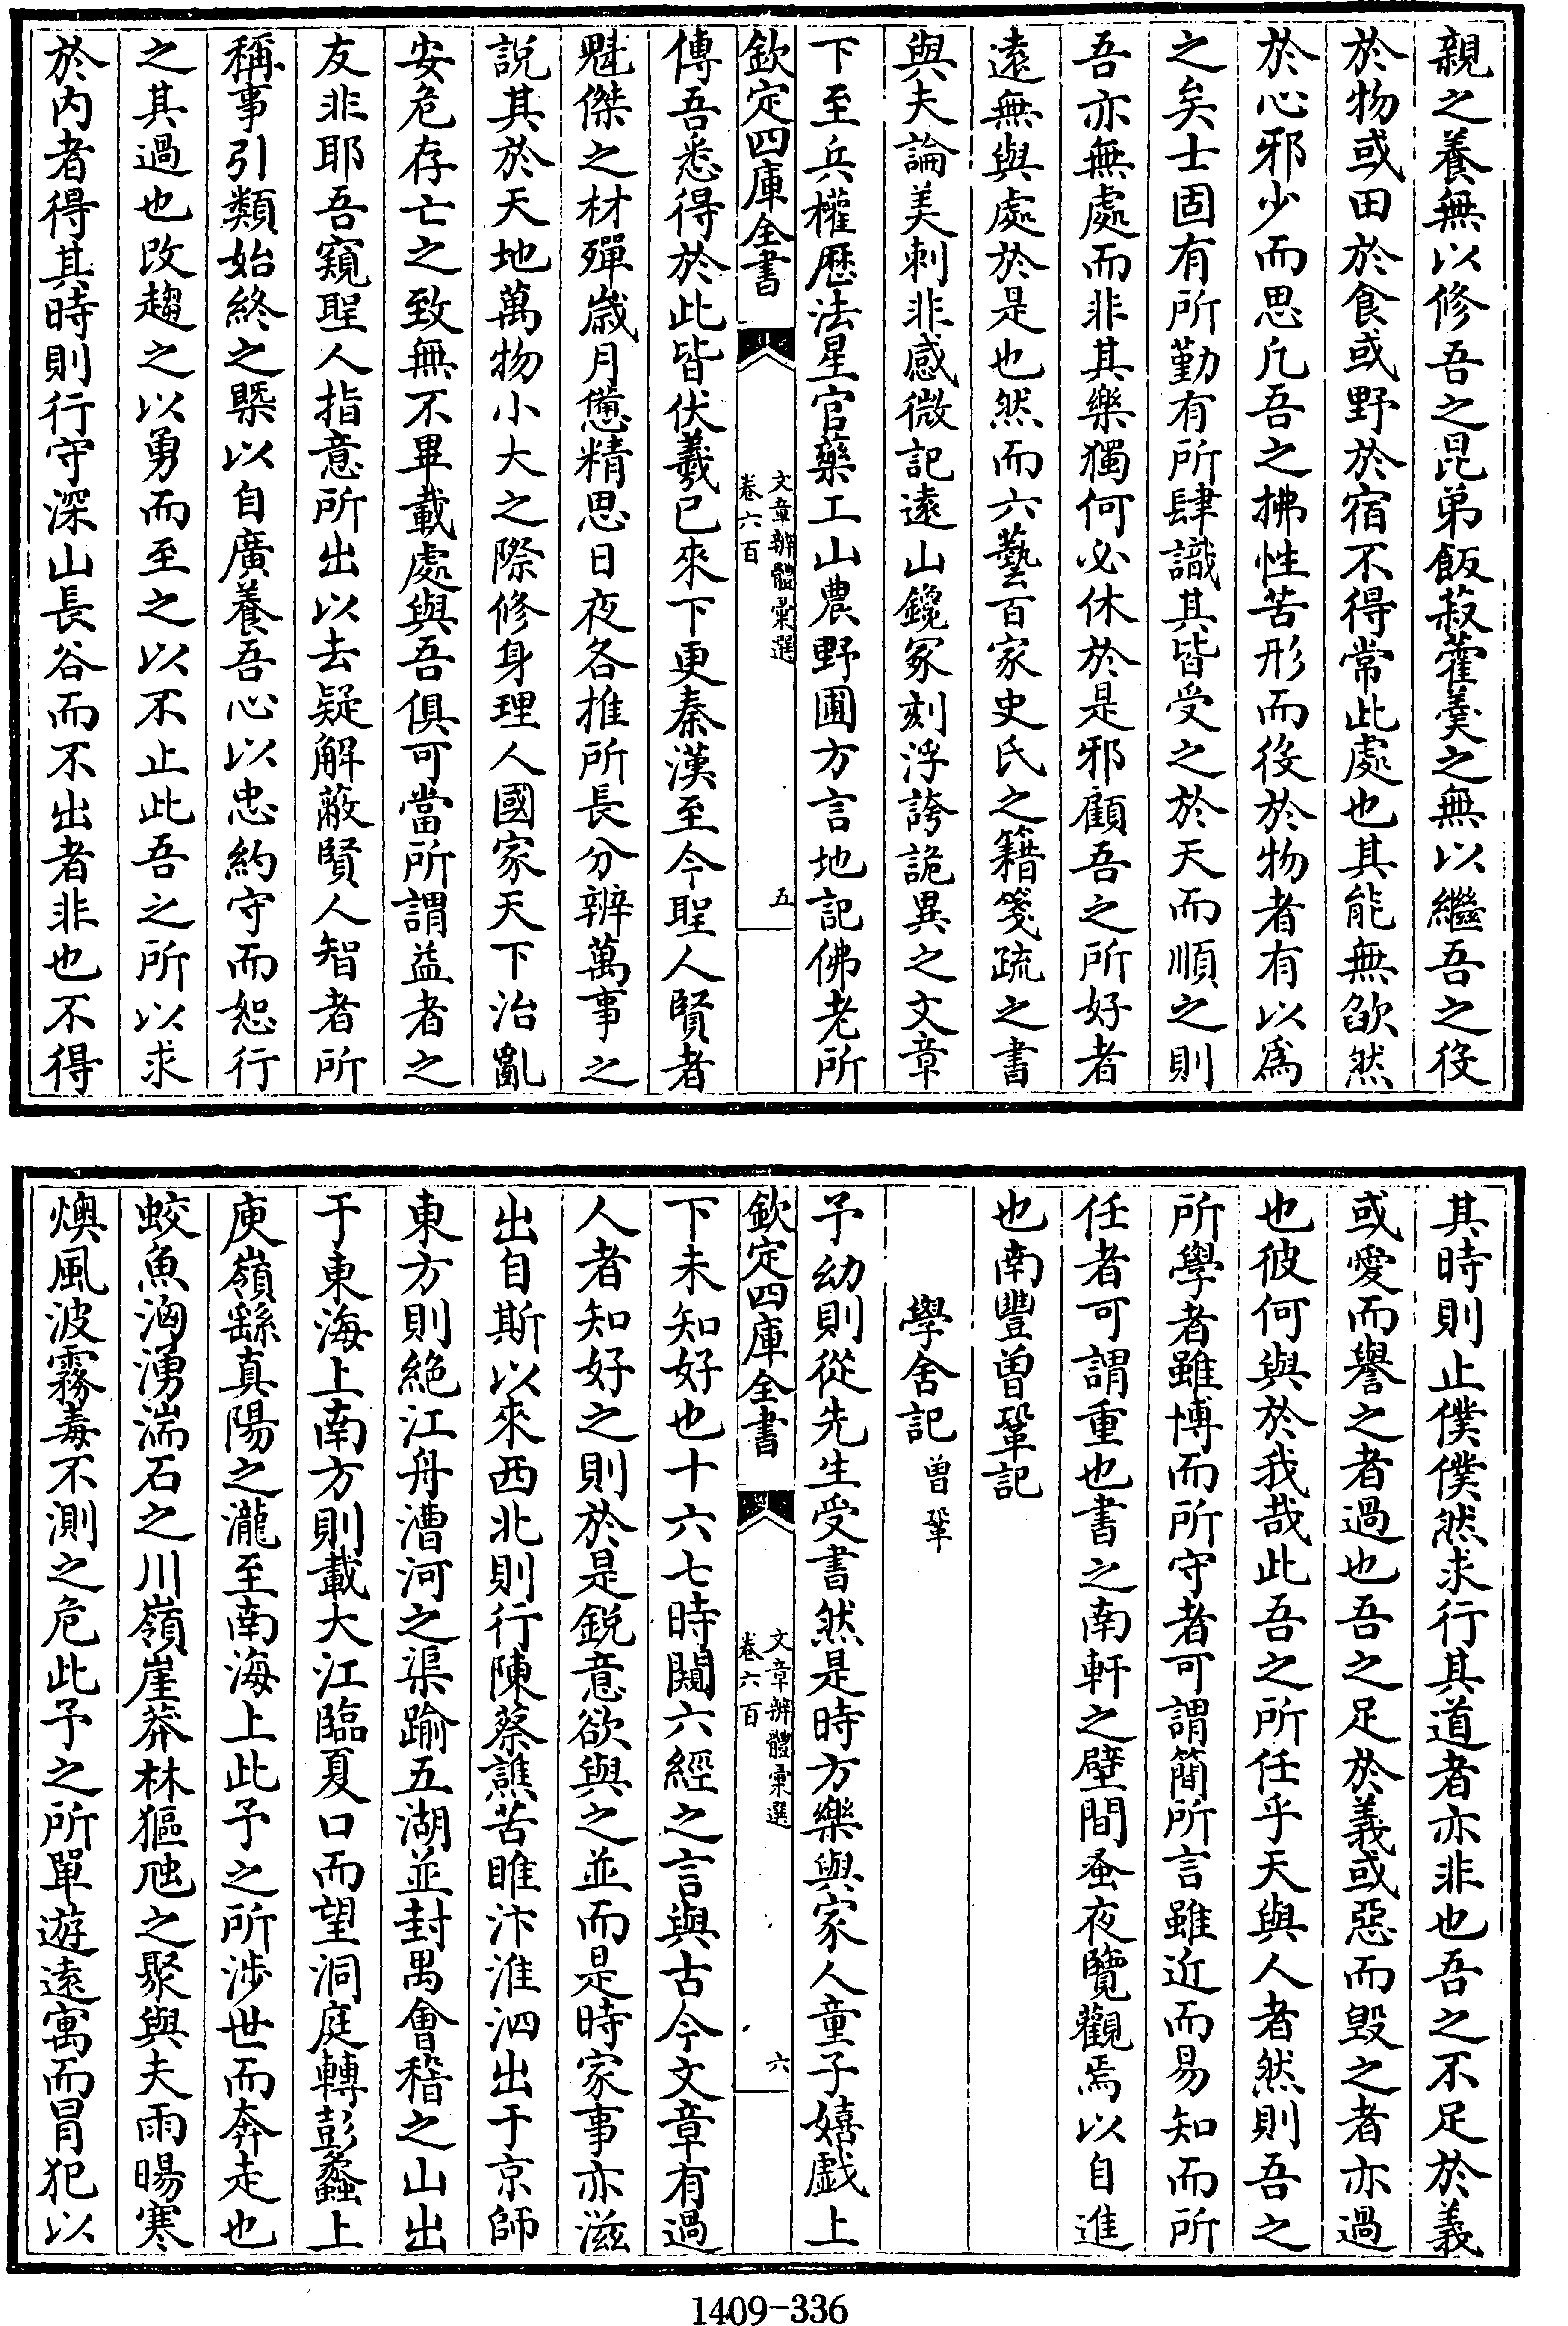 親之養無以修吾之昆弟飯菽藿羹之無以繼吾之役
於物或田於食或野於宿不得常此處也其能無欿然
於心邪少而思凡吾之拂性苦形而役於物者有以為
之矣士固有所勤有所肆識其皆受之於天而順之則
吾亦無處而非其樂獨何必休於是邪顧吾之所好者
遠無與處於是也然而六藝百家史氏之籍箋疏之書
與夫論美刺非感微記遠山鑱冢刻浮誇詭異之文章
下至兵權歴法星官藥工山農野圃方言地記佛老所
欽定四庫全書
文章辨體彙選
卷六百
五
傳吾悉得於此皆伏羲已來下更秦漢至今聖人賢者
魁傑之材殫嵗月憊精思日夜各推所長分辨萬事之
說其於天地萬物小大之際修身理人國家天下治亂
安危存亡之致無不畢載處與吾俱可當所謂益者之
友非耶吾窺聖人指意所出以去疑解蔽賢人智者所
稱事引類始終之槩以自廣養吾心以忠約守而恕行
之其過也改趨之以勇而至之以不止此吾之所以求
於内者得其時則行守深山長谷而不出者非也不得
其時則止僕僕然求行其道者亦非也吾之不足於義
或愛而譽之者過也吾之足於義或惡而毁之者亦過
也彼何與於我哉此吾之所任乎天與人者然則吾之
所學者雖博而所守者可謂簡所言雖近而易知而所
任者可謂重也書之南軒之壁間蚤夜覽觀焉以自進
也南豐曽鞏記
學舍記 曽鞏
予幼則從先生受書然是時方樂與家人童子嬉戲上
欽定四庫全書
文章辨體彙選
卷六百
六
下未知好也十六七時闚六經之言與古今文章有過
人者知好之則於是鋭意欲與之並而是時家事亦滋
出自斯以來西北則行陳蔡譙苦睢汴淮泗出于京師
東方則絶江舟漕河之渠踰五湖並封禺會稽之山出
于東海上南方則載大江臨夏口而望洞庭轉彭蠡上
庾嶺繇真陽之瀧至南海上此予之所涉世而奔走也
蛟魚洶湧湍石之川嶺崖莽林貙虺之聚與夫雨暘寒
燠風波霧毒不測之危此予之所單遊遠寓而冒犯以
1409-336